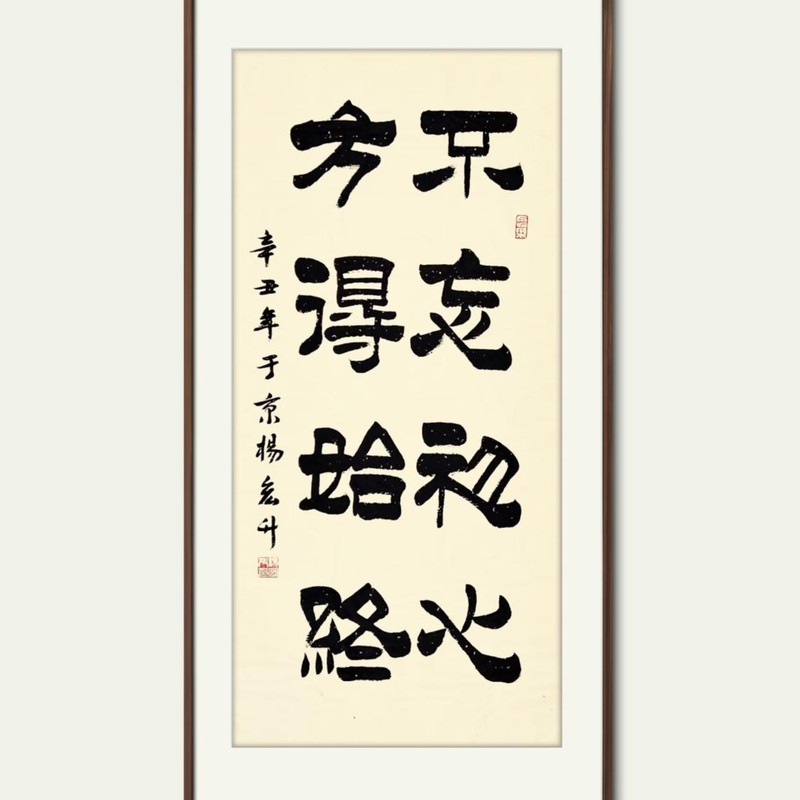 不忘初心
方得始終
辛丑年于京楊宏升